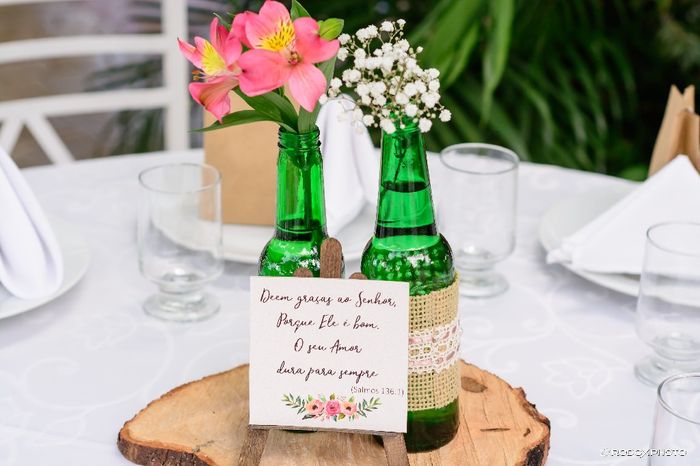 Deem graças ao Senhor,
Porque Ele é bom.
O seu Amor
dura para sempre
(Salmos 136:1)
@RODOXPHOTO